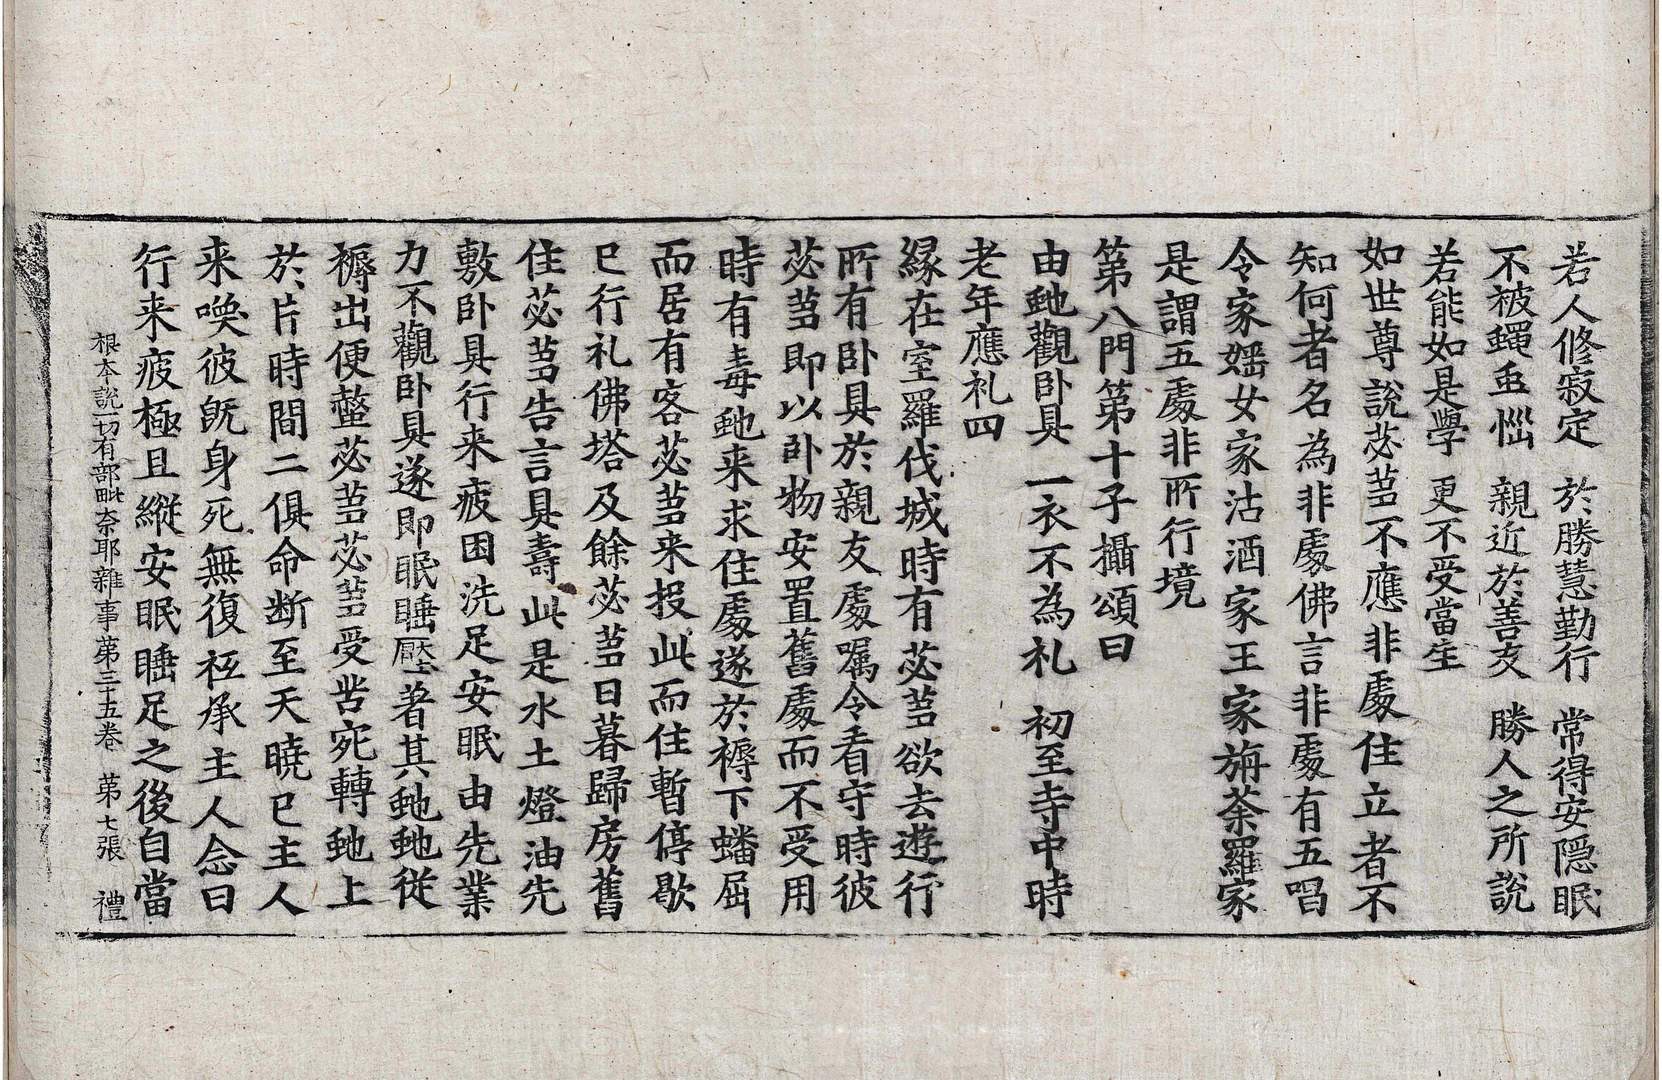 若人修寂定　於勝慧勤行　常得安隱眠
不被蠅䖟惱　親近於善友　勝人之所說
若能如是學　更不受當生
如世尊說苾芻不應非處住立者不
知何者名為非處佛言非處有五唱
令家婬女家沽酒家王家旃荼羅家
是謂五處非所行境
第八門第十子攝頌曰
由虵觀卧具　一衣不為礼　初至寺中時
老年應礼四
緣在室羅伐城時有苾芻欲去遊行
所有卧具於親友處囑令看守時彼
苾芻即以卧物安置舊處而不受用
時有毒虵来求住處遂於褥下蟠屈
而居有客苾芻来投此而住暫停歇
已行礼佛塔及餘苾芻日暮歸房舊
住苾芻告言具壽此是水土燈油先
敷卧具行来疲困洗足安眠由先業
力不觀卧具遂即眠睡壓著其虵虵從
褥出便螫苾芻苾芻受苦宛轉虵上
於片時間二俱命断至天曉已主人
来喚彼旣身死無復祗承主人念曰
行来疲極且縱安眠睡足之後自當
根本說一切有部毗奈耶雜事第三十五卷　第七張　禮